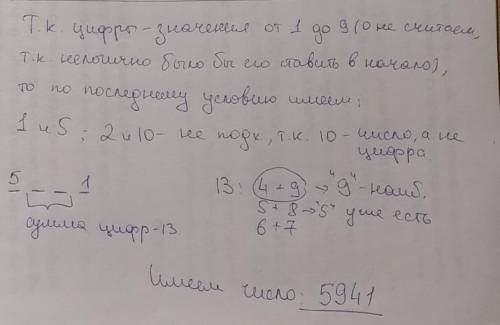 Т.к. цифры-значения от 1 до 9 (0 не считаем,
т.к. нелогично было бы его ставить в начало),
то по последнему условию имеем:
1 и 5 ; 2 и 10 - не подх, т.к. 10 - число, а не
цифра.
5 _ _ 1
сумма цифр-13
13: 4 + 9 → "9" - наиб.
5 + 8 → "5" уже есть
6 + 7
Имеем число: 5941